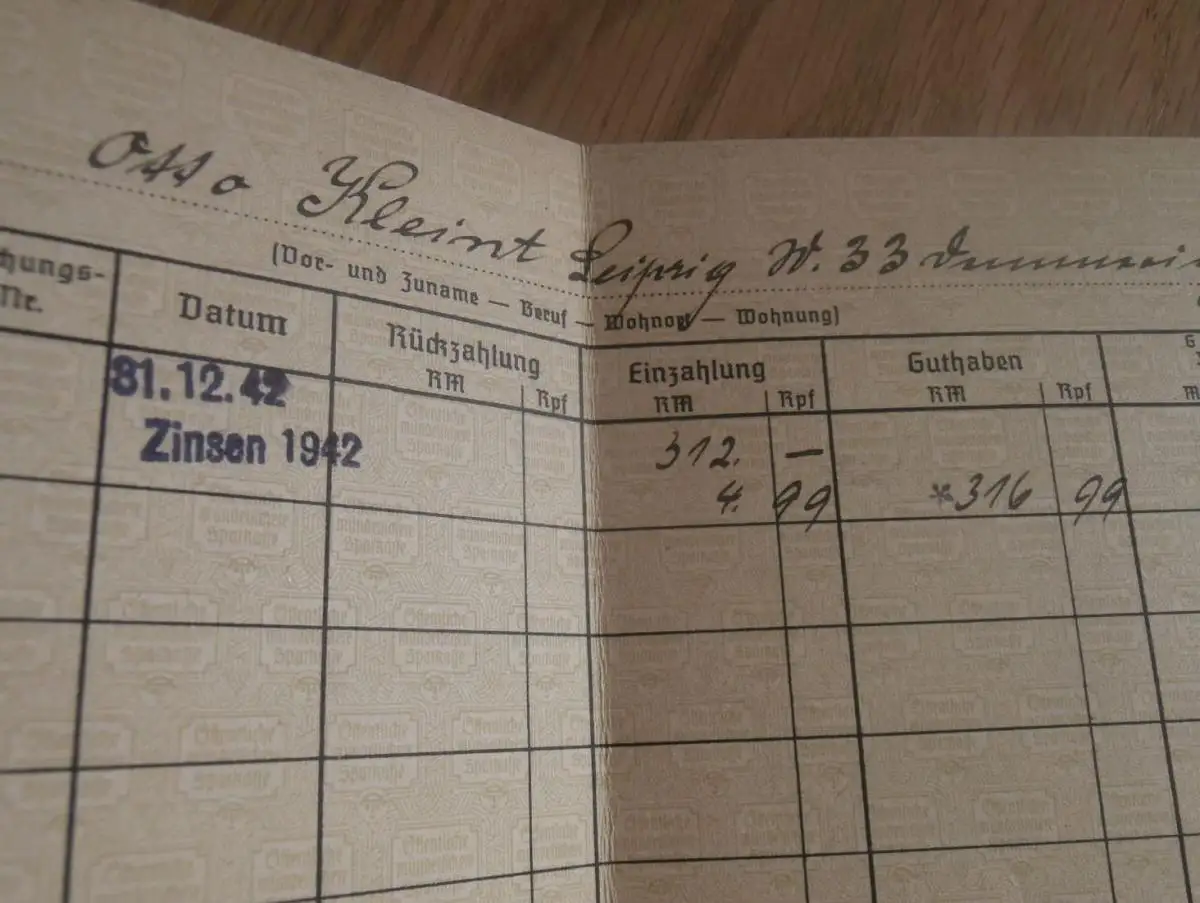 Otto Kleint Leipzig W. 33
(Vor- und Zuname — Beruf — Wohnort — Wohnung)
chungs-
Nr.
Datum Rückzahlung Einzahlung Guthaben
RM Rpf RM Rpf RM Rpf
31.12.42 312. —
Zinsen 1942 4. 99 *316 99
Öffentliche
mündelsichere
Sparkasse